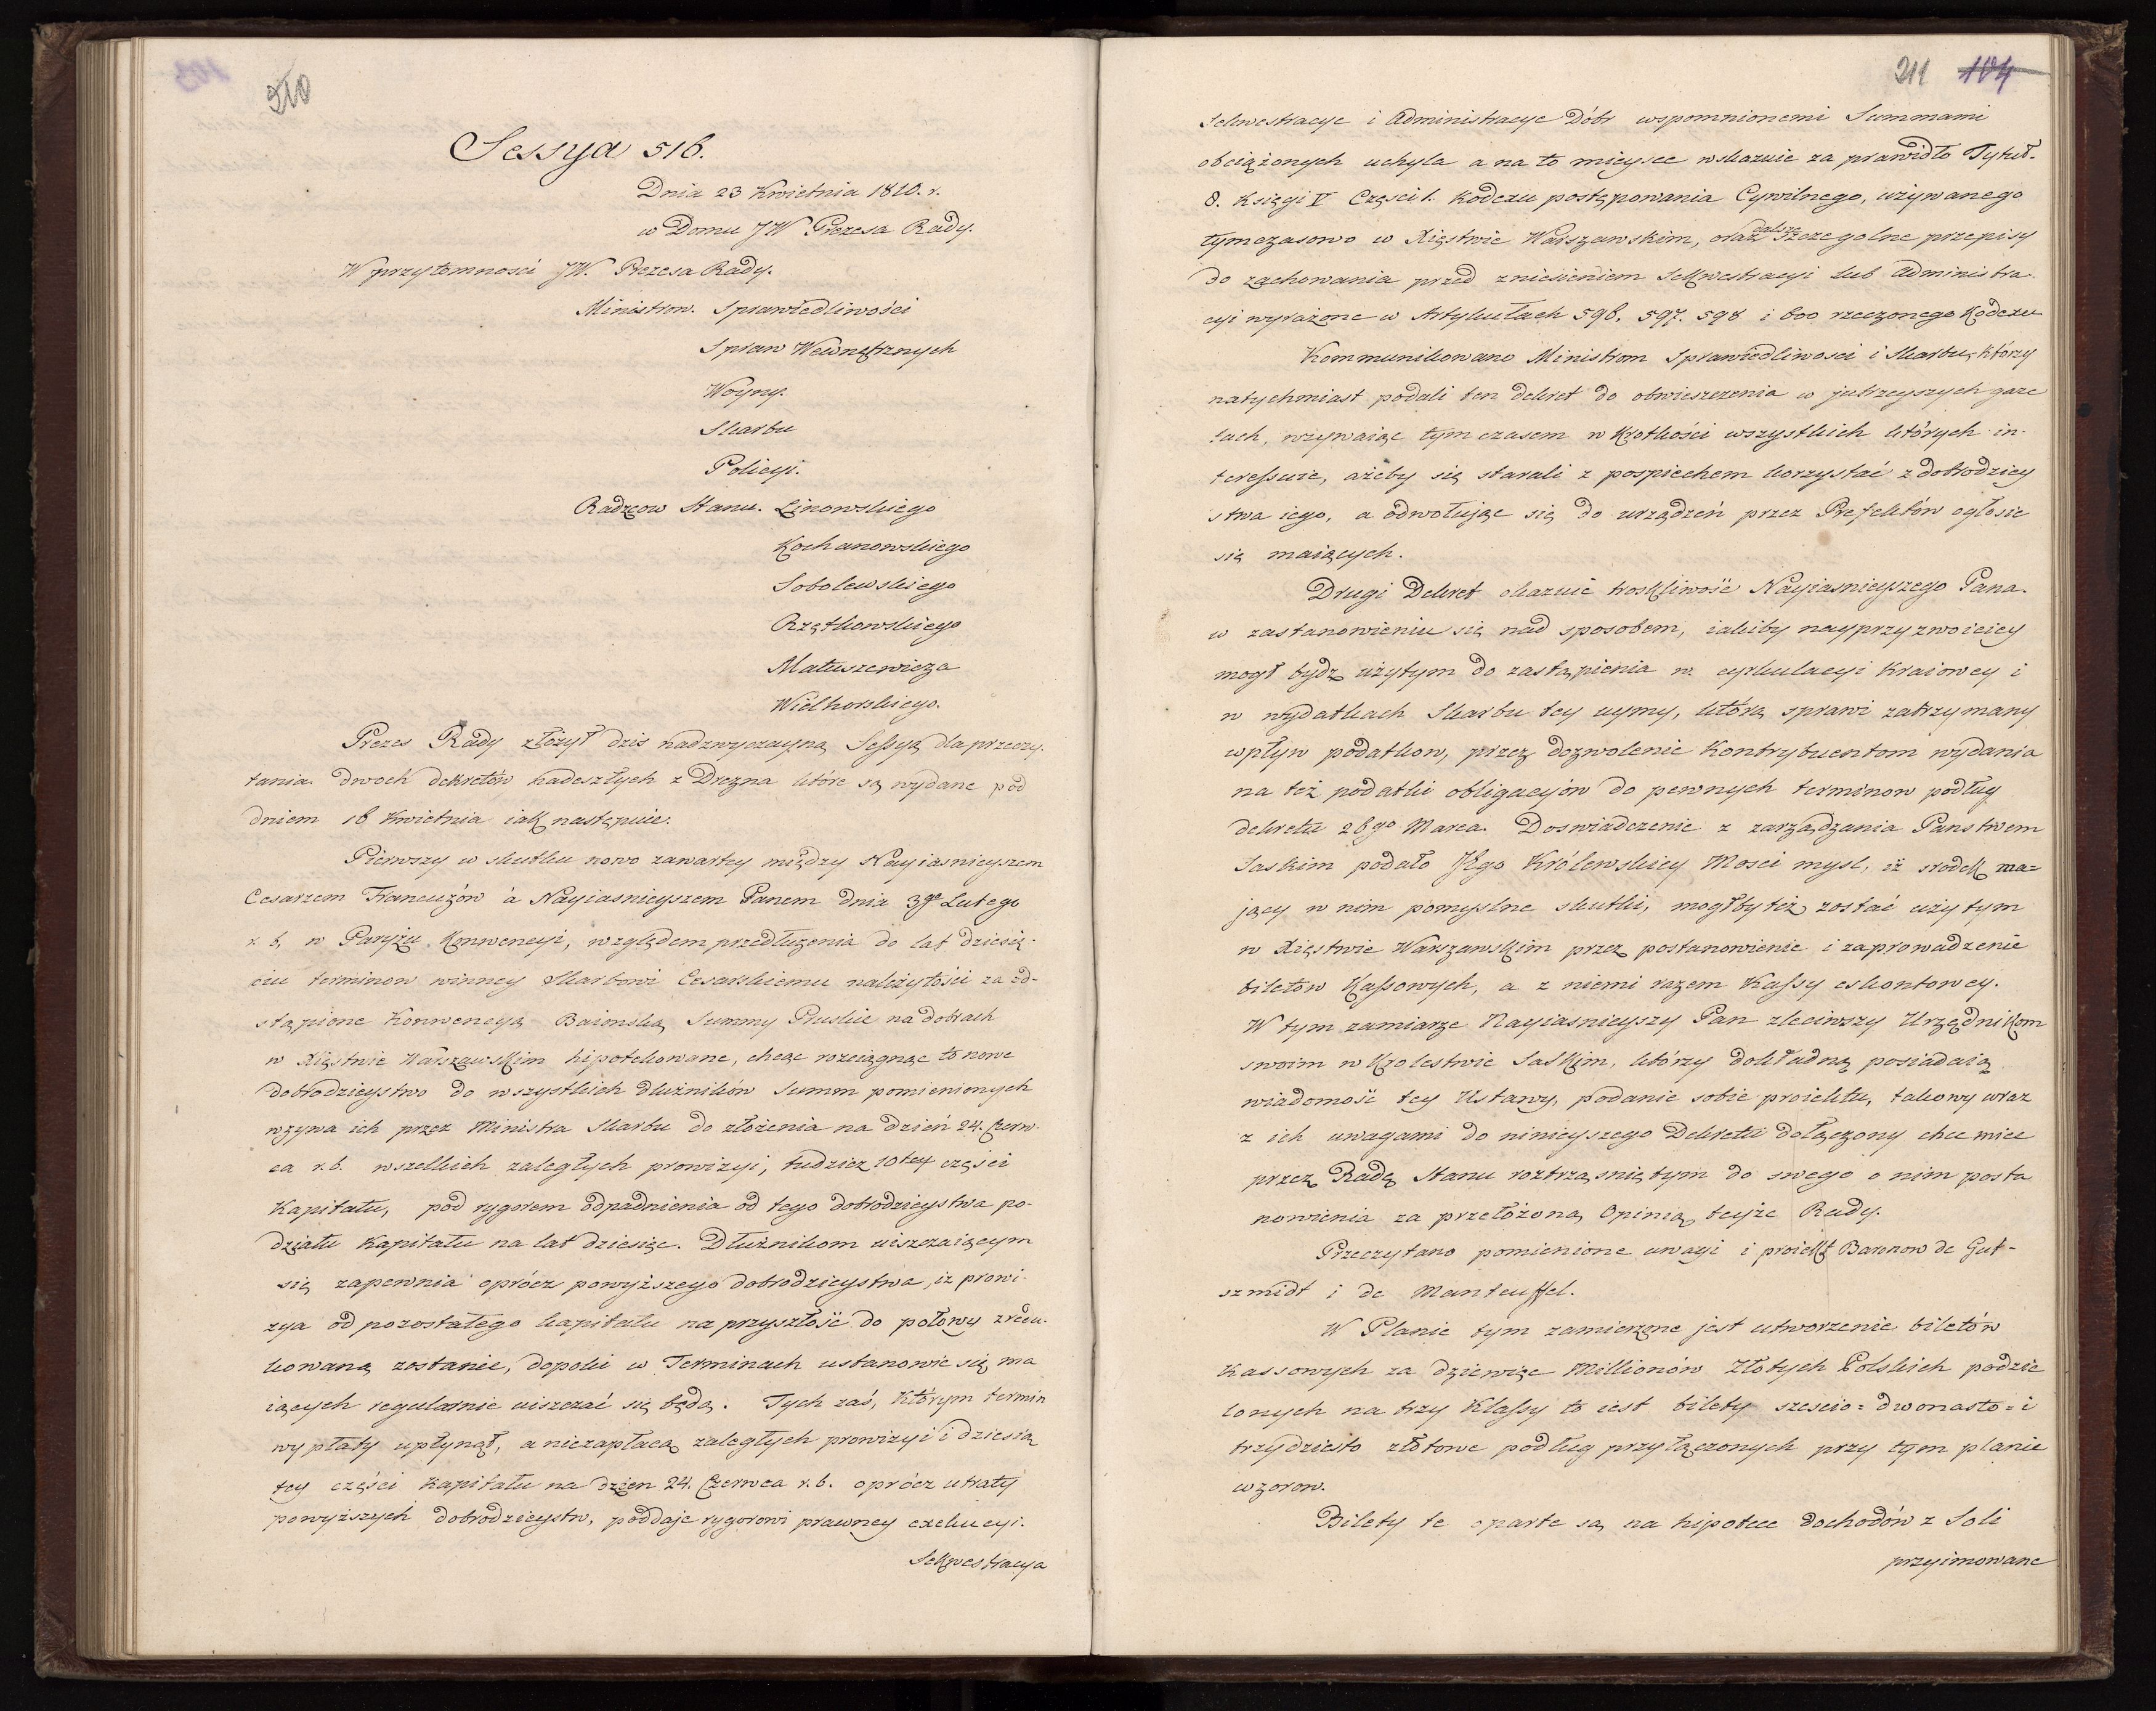 210
Sessya 516.
Dnia 23 Kwietnia 1810. r.
w Domu JW Prezesa Rady.
W przytomnosci JW. Prezesa Rady.
Ministrow. Sprawiedliwości
Spraw Wewnętrznych
Woyny.
Skarbu
Policyi.
Radzcow Stanu. Linowskiego
Kochanowskiego
Sobolewskiego
Rzętkowskiego
Matuszewicza
Wielhorskiego.
Prezes Rady złożył dzis nadzwyczayną Sessyą dla przeczy-
tania dwoch dekretów nadeszłych z Drezna które są wydane pod
dniem 16 Kwietnia iak następuie.
Pierwszy w skutku nowo zawartey między Nayiasnieyszem
Cesarzem Francuzów à Nayiasnieyszem Panem dnia 3go Lutego
r. b. w Paryżu Konwencyi, względem przedłużenia do lat dziesię-
ciu terminow winney Skarbowi Cesarskiemu należytości za od-
stąpione Konwencyą Baionską Summy Pruskie na dobrach
w Xięstwie Warszawskim hipotekowane, chcąc rozciągnąc to nowe
dobrodzieystwo do wszystkich dłużników Summ pomienionych
wzywa ich przez Ministra Skarbu do złożenia na dzień 24. Czerw-
ca r. b. wszelkich zaległych prowizyi, tudziez 10tey części
Kapitału, pod rygorem odpadnienia od tego dobrodzieystwa po-
działu Kapitału na lat dziesięc. Dłużnikom uiszczaiącym
się zapewnia oprócz powyższego dobrodzieystwa, iz prowi-
zya od pozostałego kapitału na przyszłość do połowy zredu-
kowaną zostanie, dopoki w Terminach ustanowic się ma
iących regularnie uiszczać się będą. Tych zaś, którym termin
wypłaty upłynął, a niezapłacą zaległych prowizyi i dziesią
tey części Kapitału na dzien 24. Czerwca r. b. oprócz utraty
powyższych dobrodzieystw, poddaje rygorowi prawney exekucyi.
Sekwestracya
211 104
Sekwestracye i Administracye Dóbr wspomnionemi Summami
obciążonych uchyla a na to mieysce wskazuie za prawidło Tytuł.
8. Księgi V Częsci 1. Kodexu postępowania Cywilnego, używanego
tymczasowo w Xięstwie Warszawskim, oraz dalsze szczegolne przepisy
do zachowania przed zniesieniem Sekwestracyi lub Administra-
cyi wyrażone w Artykułach 596. 597. 598 i 600 rzeczonego Kodexu
Kommunikowano Ministrom Sprawiedliwosci i Skarbu, którzy
natychmiast podali ten dekret do obwieszczenia w jutrzeyszych gaze
tach, wzywaiąc tymczasem w krotkości wszystkich których in-
teressuie, ażeby się starali z pospiechem korzystać z dobrodziey
stwa iego, a odwołując się do urządzeń przez Prefektów ogłosic
się maiących.
Drugi Dekret okazuie troskliwość Nayiasnieyszego Pana.
w zastanowieniu się nad sposobem, iakiby nayprzyzwoiciey
mogł bydz użytym do zastąpienia w cyrkulacyi Kraiowey i
w wydatkach Skarbu tey uymy, którą sprawi zatrzymany
wpływ podatkow, przez dozwolenie Kontrybuentom wydania
na też podatki obligacyów do pewnych terminow podług
dekretu 26go Marca. Doswiadczenie z zarządzania Panstwem
Saskim podało JKgo Królewskiey Mosci mysl, iż srodek ma=
jący w nim pomyslne skutki, mogłby też zostać użytym
w Xięstwie Warszawskim przez postanowienie i zaprowadzenie
biletów Kassowych, a z niemi razem Kassy eskontowey.
W tym zamiarze Nayiasnieyszy Pan zleciwszy Urzędnikom
swoim w Krolestwie Saskim, którzy dokładną posiadaią
wiadomość tey Ustawy, podanie sobie proiektu, takowy wraz
z ich uwagami do ninieyszego Dekretu dołączony chce miec
przez Radę Stanu roztrząsniętym do swego o nim posta
nowienia za przełożoną Opinią teyże Rady.
Przeczytano pomienione uwagi i proiekt Baronow de Gut-
szmidt i de Manteuffel.
W Planie tym zamierzone jest utworzenie biletów
Kassowych za dziewięc Millionów Złotych Polskich podzie
lonych na trzy Klassy to iest bilety szescio= dwonasto= i
trzydziesto złotowe podług przyłączonych przy tym planie
wzorow.
Bilety te oparte są na hipotece dochodów z Soli
przyimowane